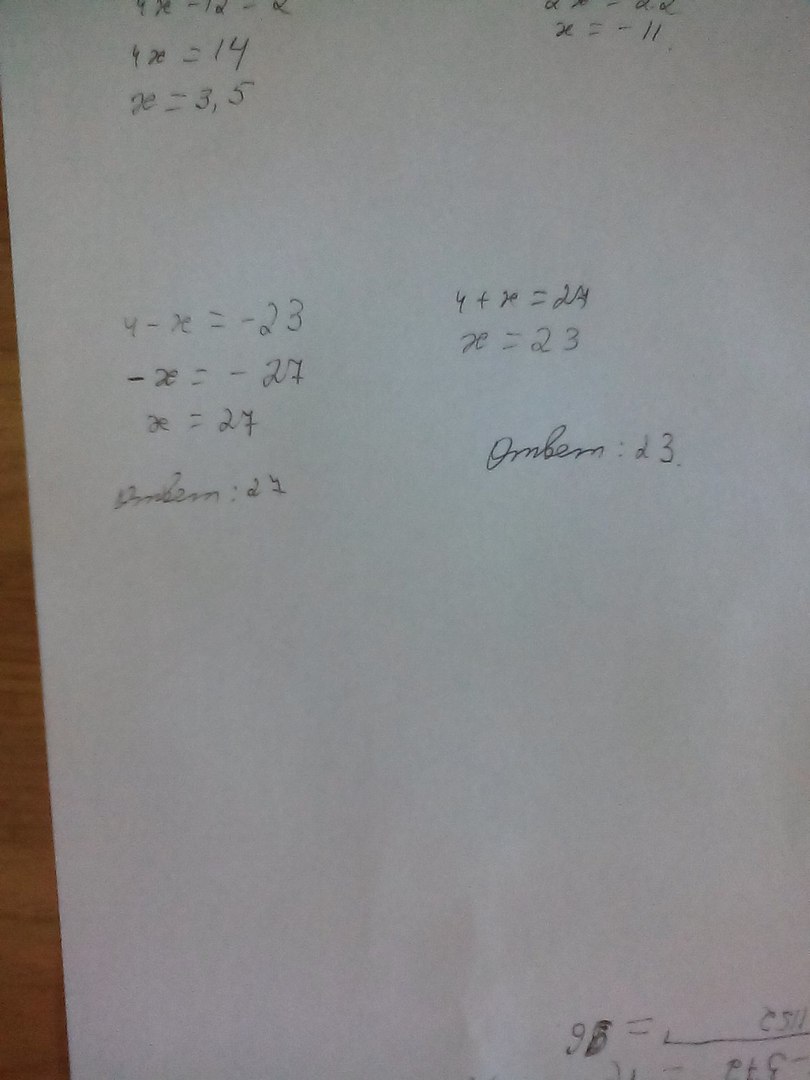 4x - 12 = 2
4x = 14
x = 3,5
x = - 11
4 - x = -23
- x = - 27
x = 27
Ответ: 27
4 + x = 27
x = 23
Ответ: 23.
1152
= 96